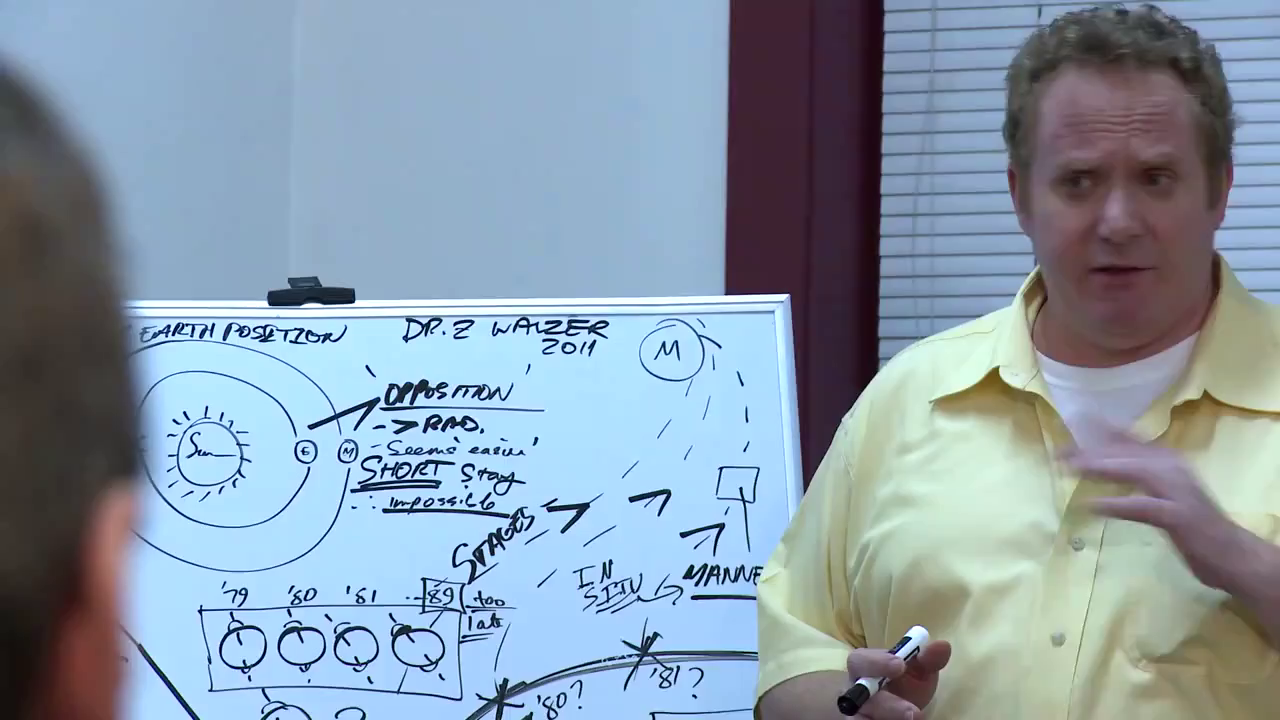 EARTH POSITION
DR. Z WALZER
2011
M
OPPOSITION
-> RAD.
- Seems 'easier'
SHORT Stay
impossible
Sun
E
M
STAGES
IN
SITU
?
MANNE
'79 '80 '81 ...'89 too
late
'80?
'81?